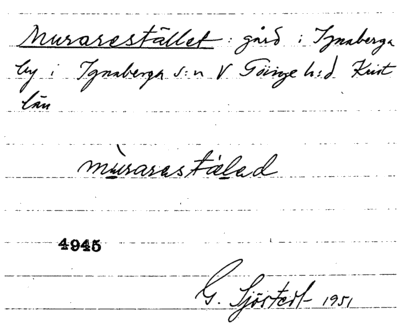 Murarestället : gård i Ignaberga
by i Ignaberga s:n V Göinge h:d Krist
län
mùrarestälad
4945
G. Sjöstedt 1951